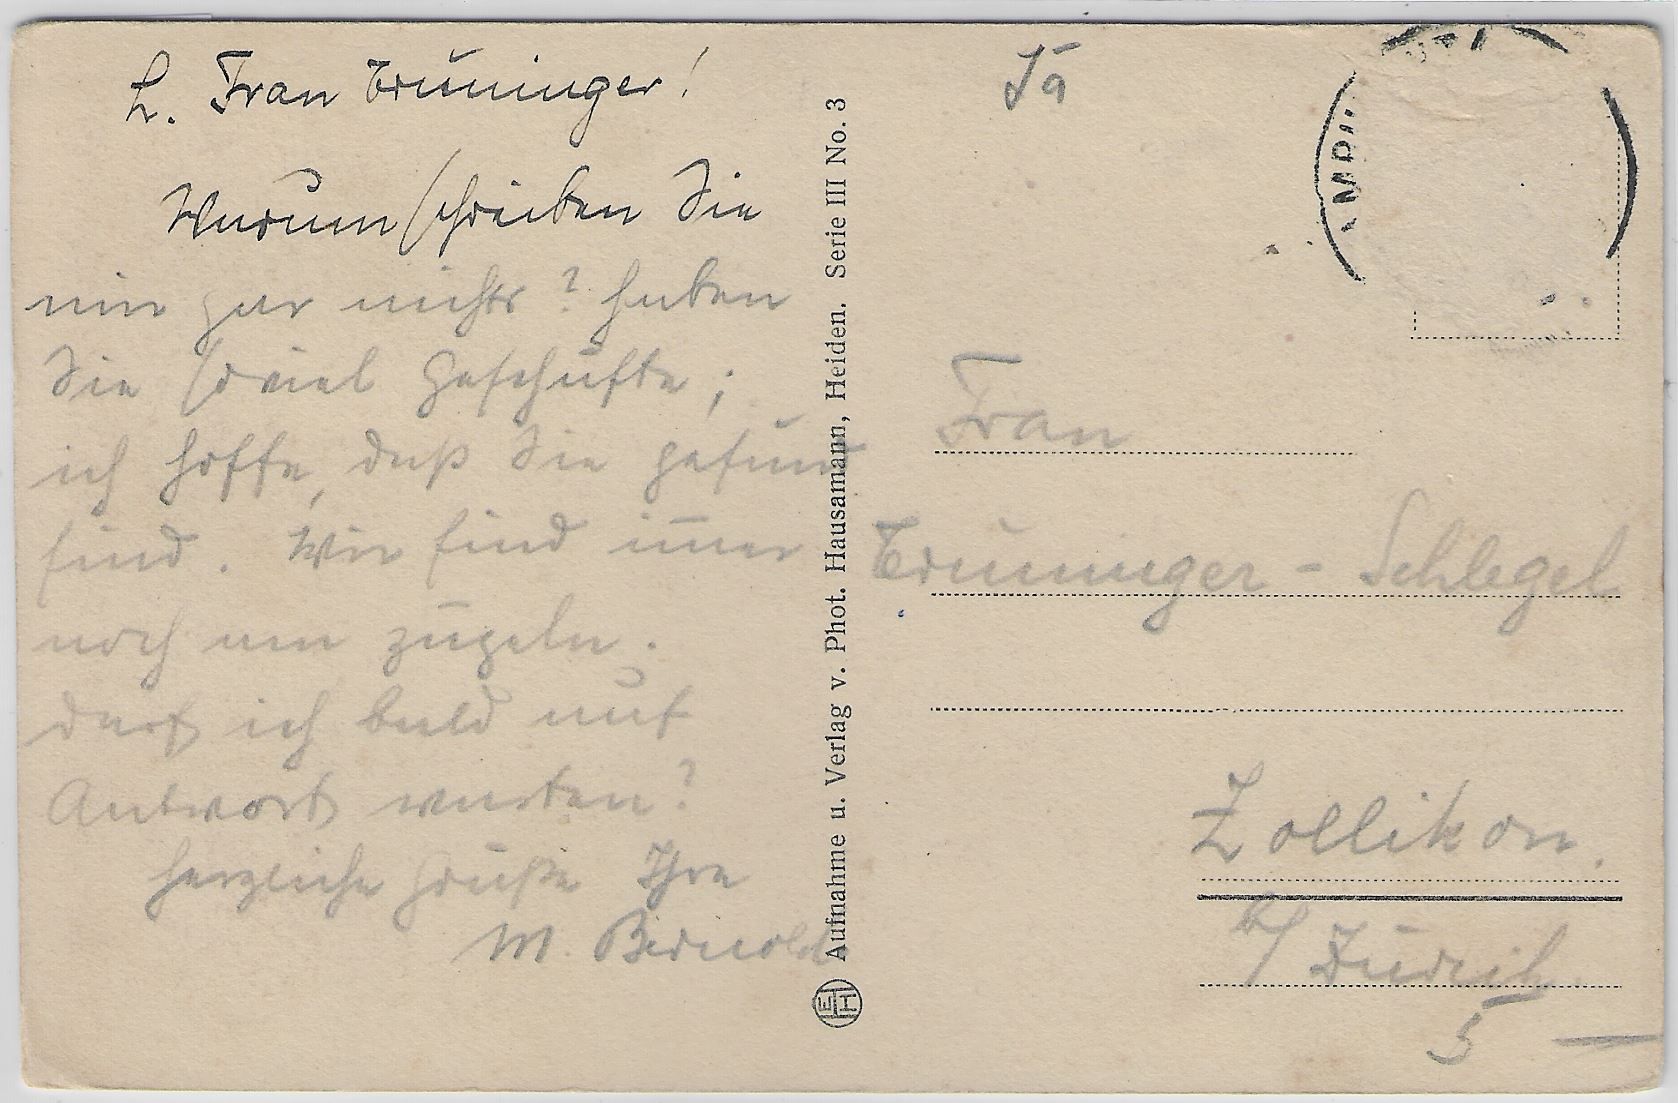 L. Frau Trüninger!
Warum schreiben Sie
mir gar nichts? Haben
Sie soviel Geschäfte;
ich hoffe, daß Sie gesund
sind. Wir sind im̅er
noch am zügeln.
darf ich bald auf
Antwort warten?
Herzliche Grüße Ihre
M. Bernold
Aufnahme u. Verlag v. Phot. Hausamann, Heiden. Serie III No. 3
EH
Frau
Trüninger - Schlegel
Zollikon.
b/ Zürich.
5